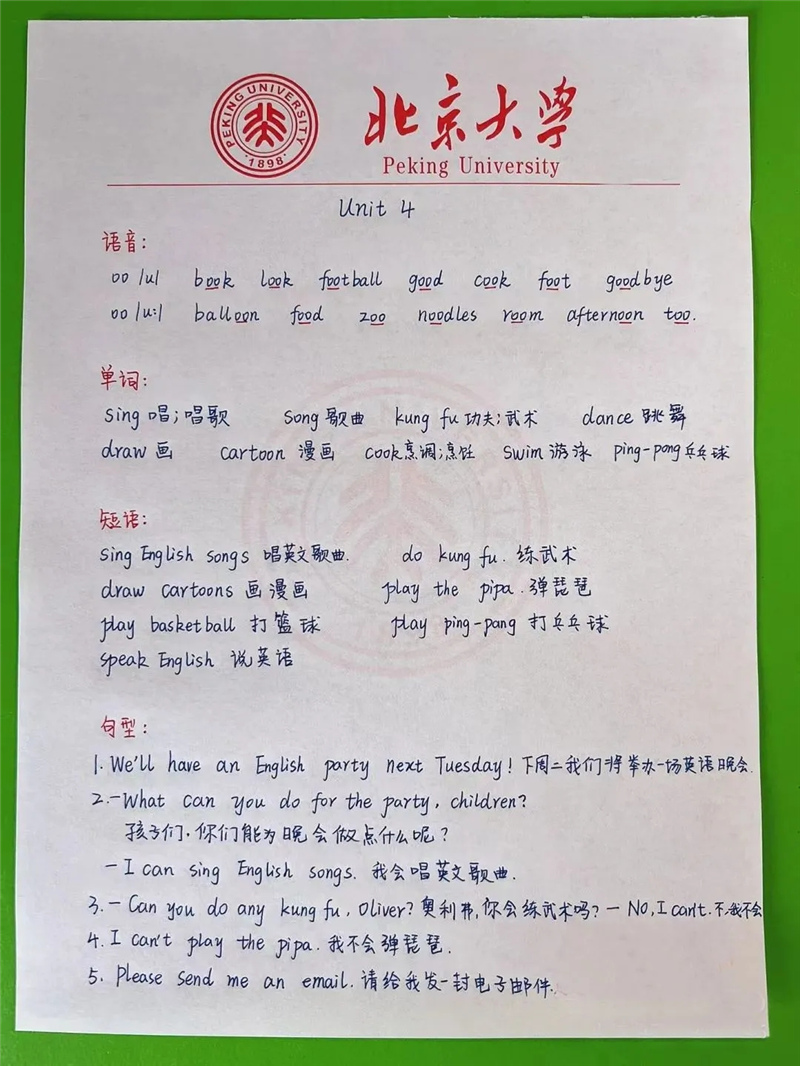 PEKING UNIVERSITY
1898
北京大学
Peking University
Unit 4
语音:
oo /u/ book look football good cook foot goodbye
oo /u:/ balloon food zoo noodles room afternoon too.
单词:
sing 唱;唱歌 song 歌曲 kung fu 功夫;武术 dance 跳舞
draw 画 cartoon 漫画 cook烹调;烹饪 swim 游泳 ping-pong乒乓球
短语:
sing English songs 唱英文歌曲. do kung fu. 练武术
draw cartoons 画漫画 play the pipa.弹琵琶
play basketball 打篮球 play ping-pang 打乒乓球
speak English 说英语
句型:
1. We'll have an English party next Tuesday! 下周二我们将举办一场英语晚会.
2.-What can you do for the party, children?
孩子们.你们能为晚会做点什么呢?
-I can sing English songs. 我会唱英文歌曲.
3.- Can you do any kung fu, Oliver? 奥利弗,你会练武术吗? - NO, I can't. 不,我不会
4. I can't play the pipa. 我不会弹琵琶.
5. Please send me an email. 请给我发一封电子邮件.